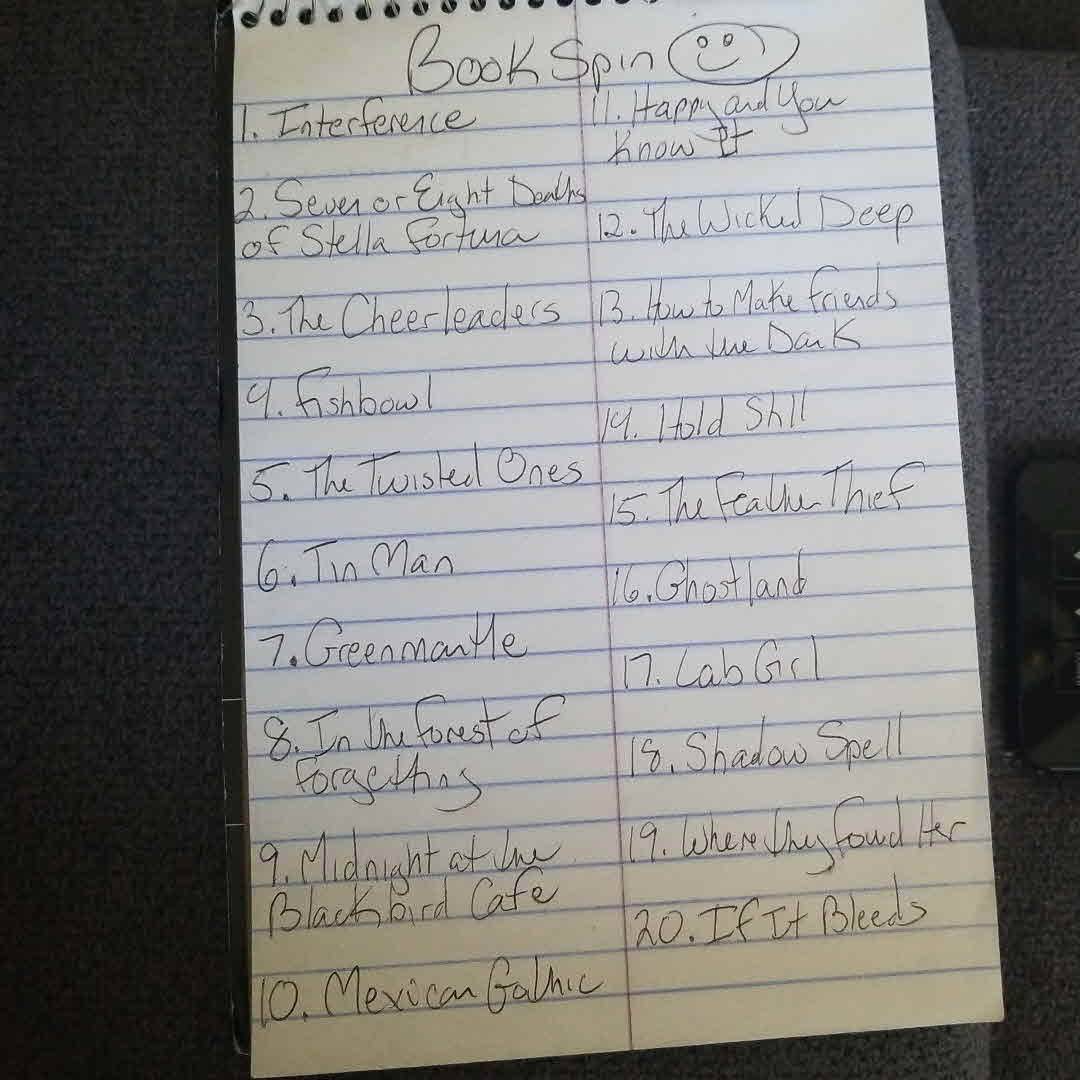 Book Spin
1. Interference
2. Seven or Eight Deaths
of Stella Fortuna
3. The Cheerleaders
4. Fishbowl
5. The Twisted Ones
6. Tin Man
7. Greenmantle
8. In the Forest of
Forgetting
9. Midnight at the
Blackbird Cafe
10. Mexican Gothic
11. Happy and You
Know It
12. The Wicked Deep
13. How to Make Friends
with the Dark
14. Hold Still
15. The Feather Thief
16. Ghostland
17. Lab Girl
18. Shadow Spell
19. Where They Found Her
20. If It Bleeds